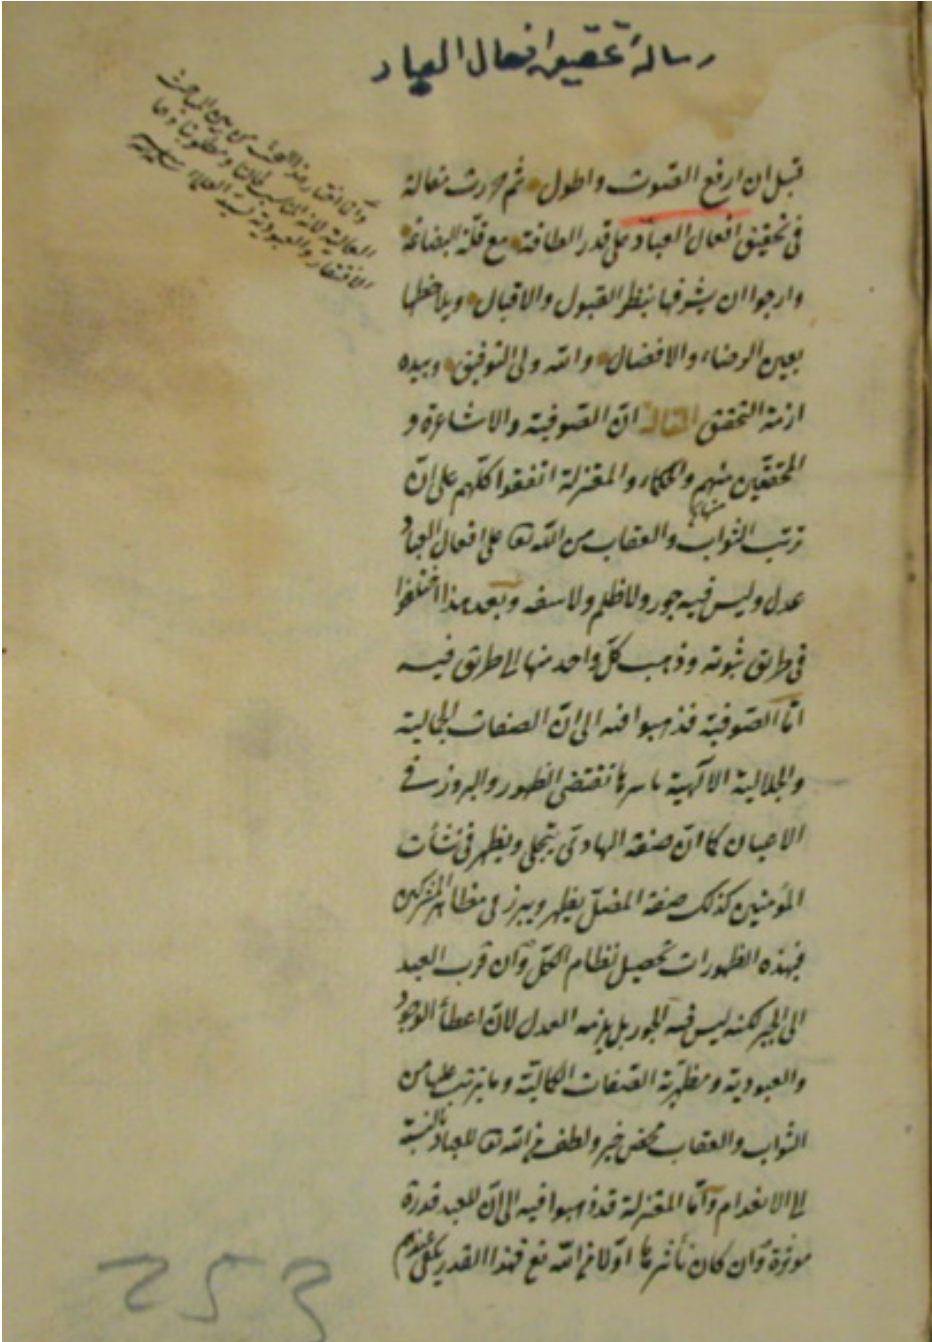 رسالة تحقيق افعال العباد
وانما اختار هذا البحث من بين المباحث
العالية لانه المناسب لحالنا ومطلوبنا وهما
الافتقار والعبودية
قبل ان ارفع الصوت واطول ثم حررت مقالة
فى تحقيق افعال العباد على قدر الطاقة مع قلة البضاعة
وارجوا ان يشرفها بنظر القبول والاقبال ويلاحظها
بعين الرضاء والافضال والله ولى التوفيق وبيده
ازمة التحقق المقالة انّ الصوفية والاشاعرة و
المحققين منهم والحكماء والمعتزلة اتفقوا كلّهم على انّ
ترتب الثواب والعقاب من الله تعا على افعال العباد
عدل وليس فيه جور ولا ظلم ولا سفه وبعد هذا اختلفوا
فى طريق ثبوته وذهب كلّ واحد منها الى طريق فيه
امّا الصوفية فذهبوا فيه الى انّ الصفات الجمالية
والجلالية الالهية باسرها تقتضى الظهور والبروز فى
الاعيان كما انّ صفة الهادى يتجلى ويظهر فى نشأت
المؤمنين كذلك صفة المضلّ يظهر ويبرز فى مظاهر المشركين
فبهذه الظهورات تحصيل نظام الكلّ وان قرب العبد
الى الجبر لكنه ليس فيه الجور بل يلزمه العدل لانّ اعطأ الوجود
والعبودية ومظهرية الصفات الكمالية وما يترتب عليها من
الثواب والعقاب محض خير ولطف من الله تعا للعباد بالنسبة
الى الانعدام وامّا المعتزلة فذهبوا فيه الى انّ للعبد قدرة
موثرة وان كان تأثيرها اولا من الله تع فهذا القدر يكفى عندهم